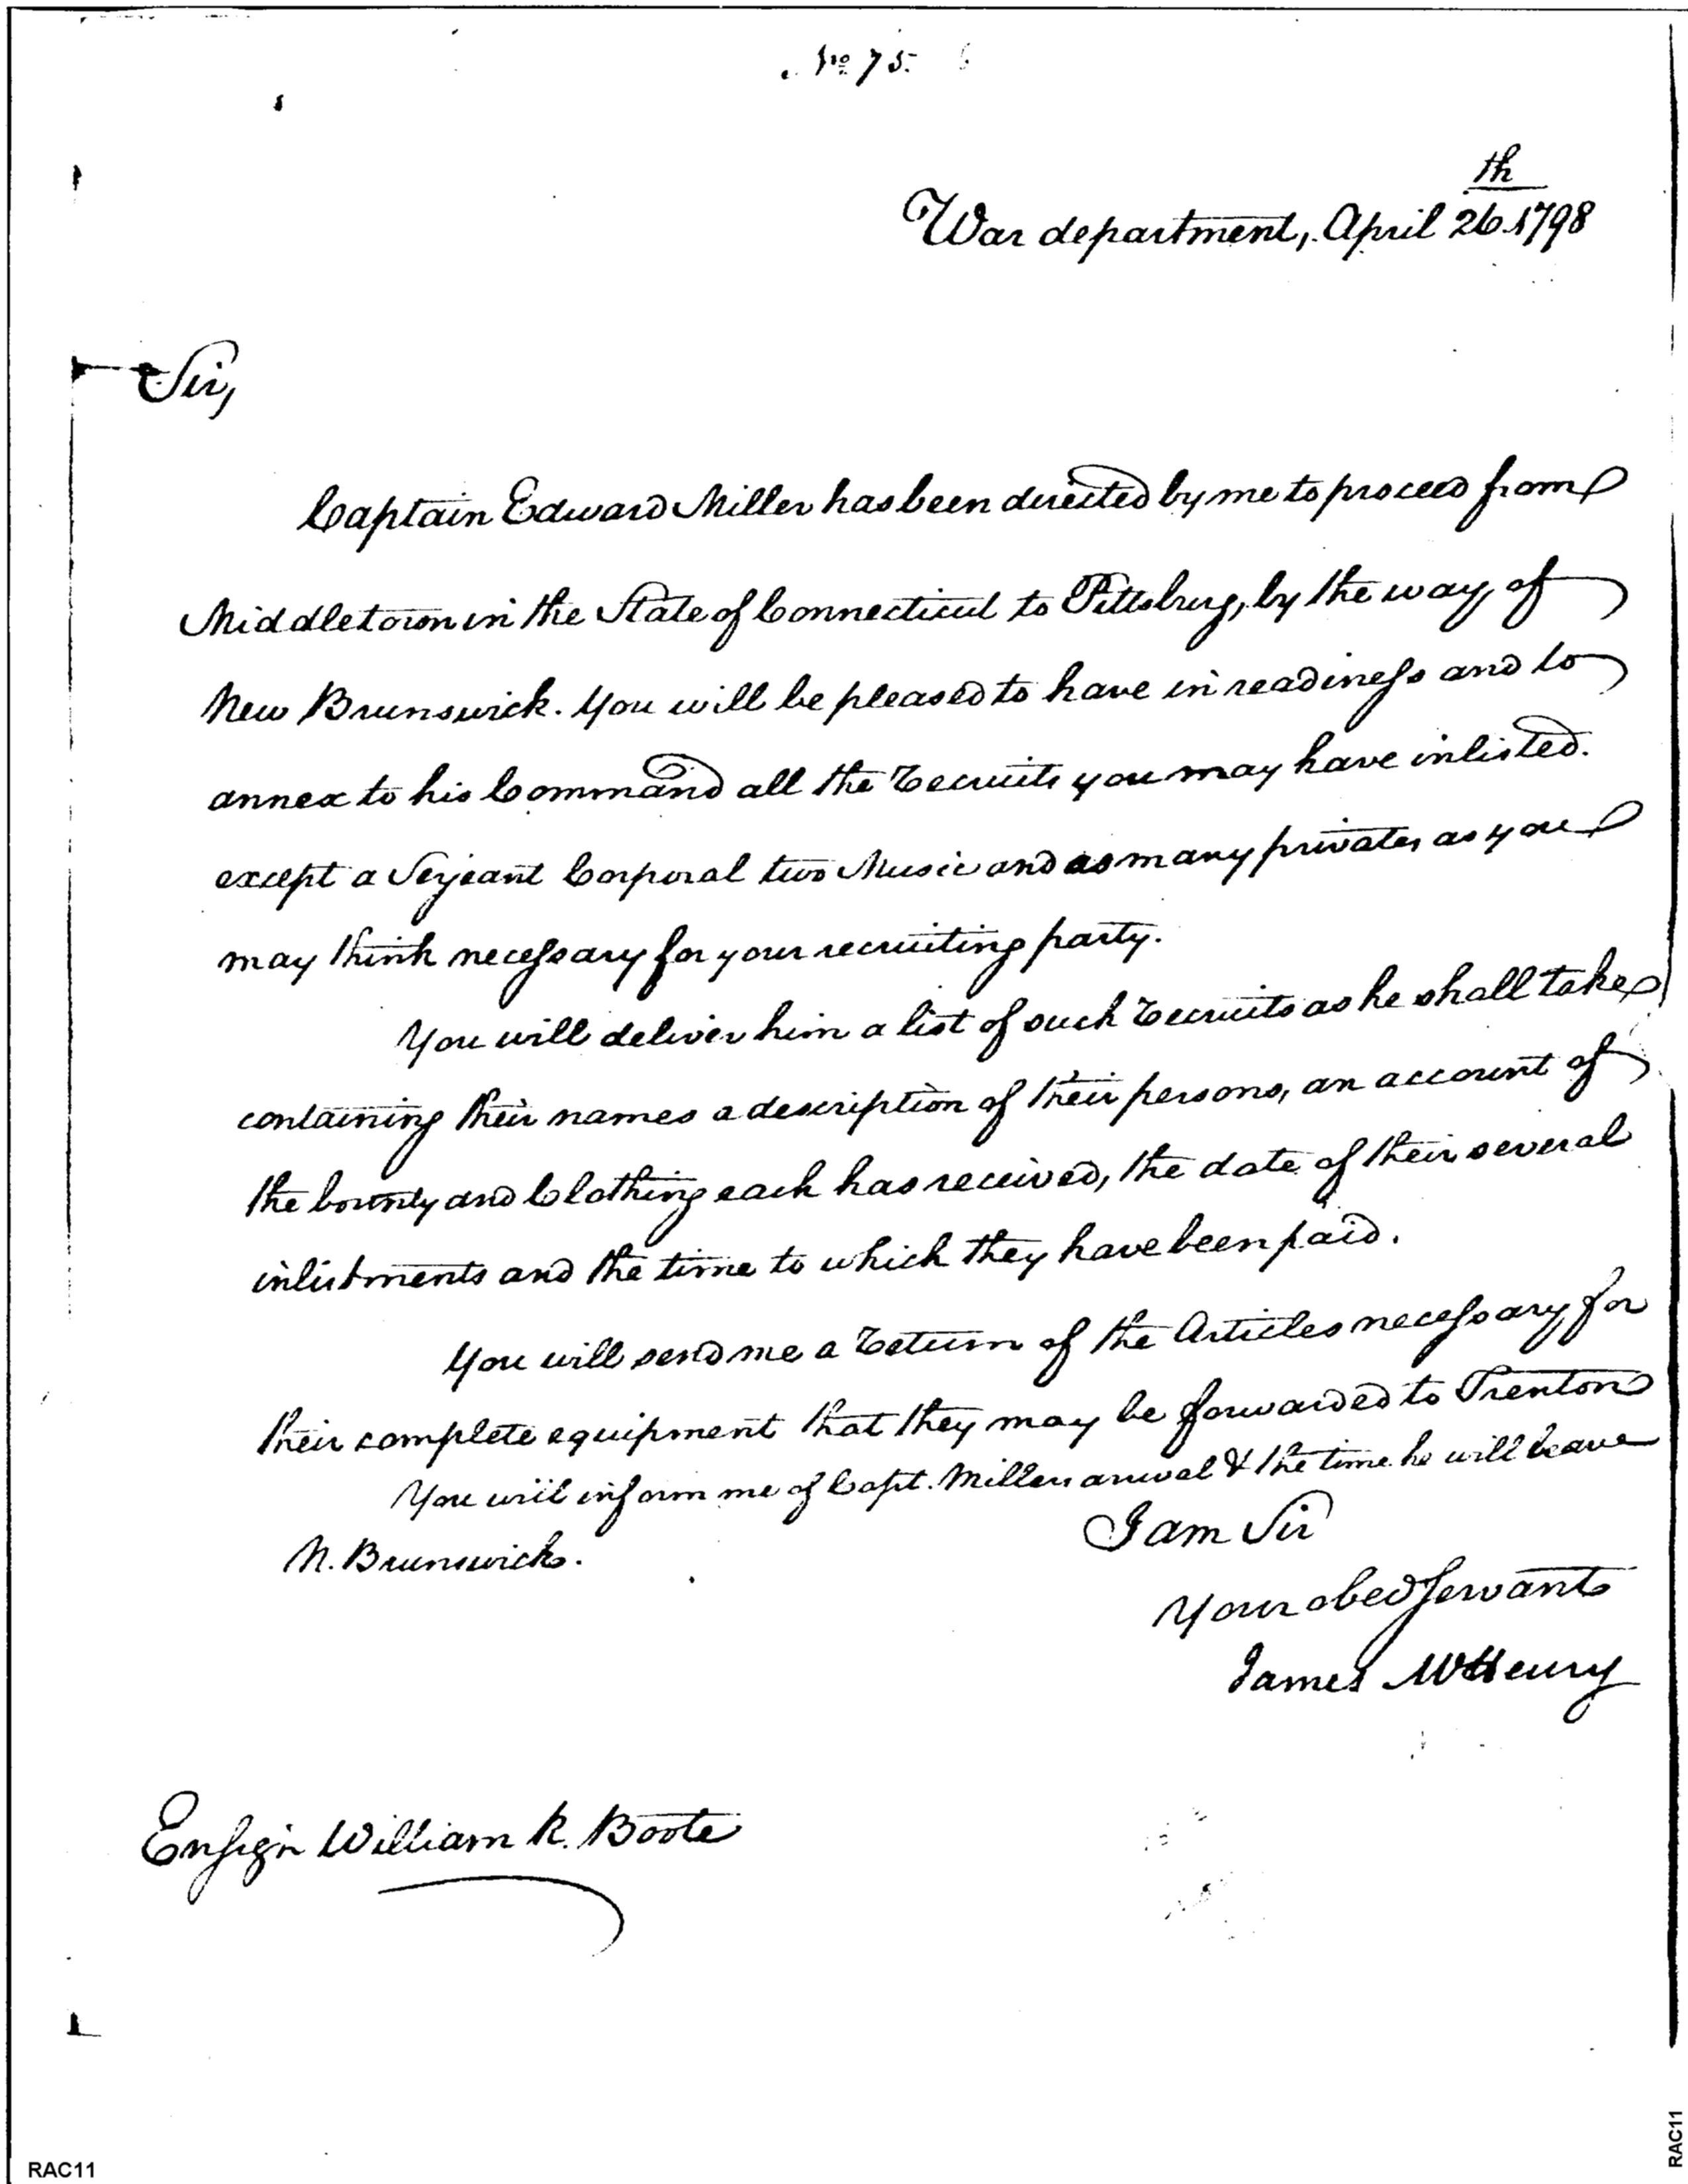 No 75.
th
War department, April 26. 1798
Sir,
Captain Edward Miller has been directed by me to proceed from
Middletown in the State of Connecticut to Pittsburg, by the way of
New Brunswick. You will be pleased to have in readiness and to
annex to his Command all the Recruits you may have inlisted.
except a Serjeant Corporal two Music and as many privates as you
may think necessary for your recruiting party.
You will deliver him a list of such Recruits as he shall take
containing their names a description of their persons, an account of
the bounty and Clothing each has received, the date of their several
inlistments and the time to which they have been paid.
You will send me a Return of the Articles necessary for
their complete equipment that they may be forwarded to Trenton
You will inform me of Capt. Millers arrival & the time he will leave
N. Brunswick.
I am Sir
Your obed Servant
James McHenry
Ensign William R. Boote
RAC11
RAC11